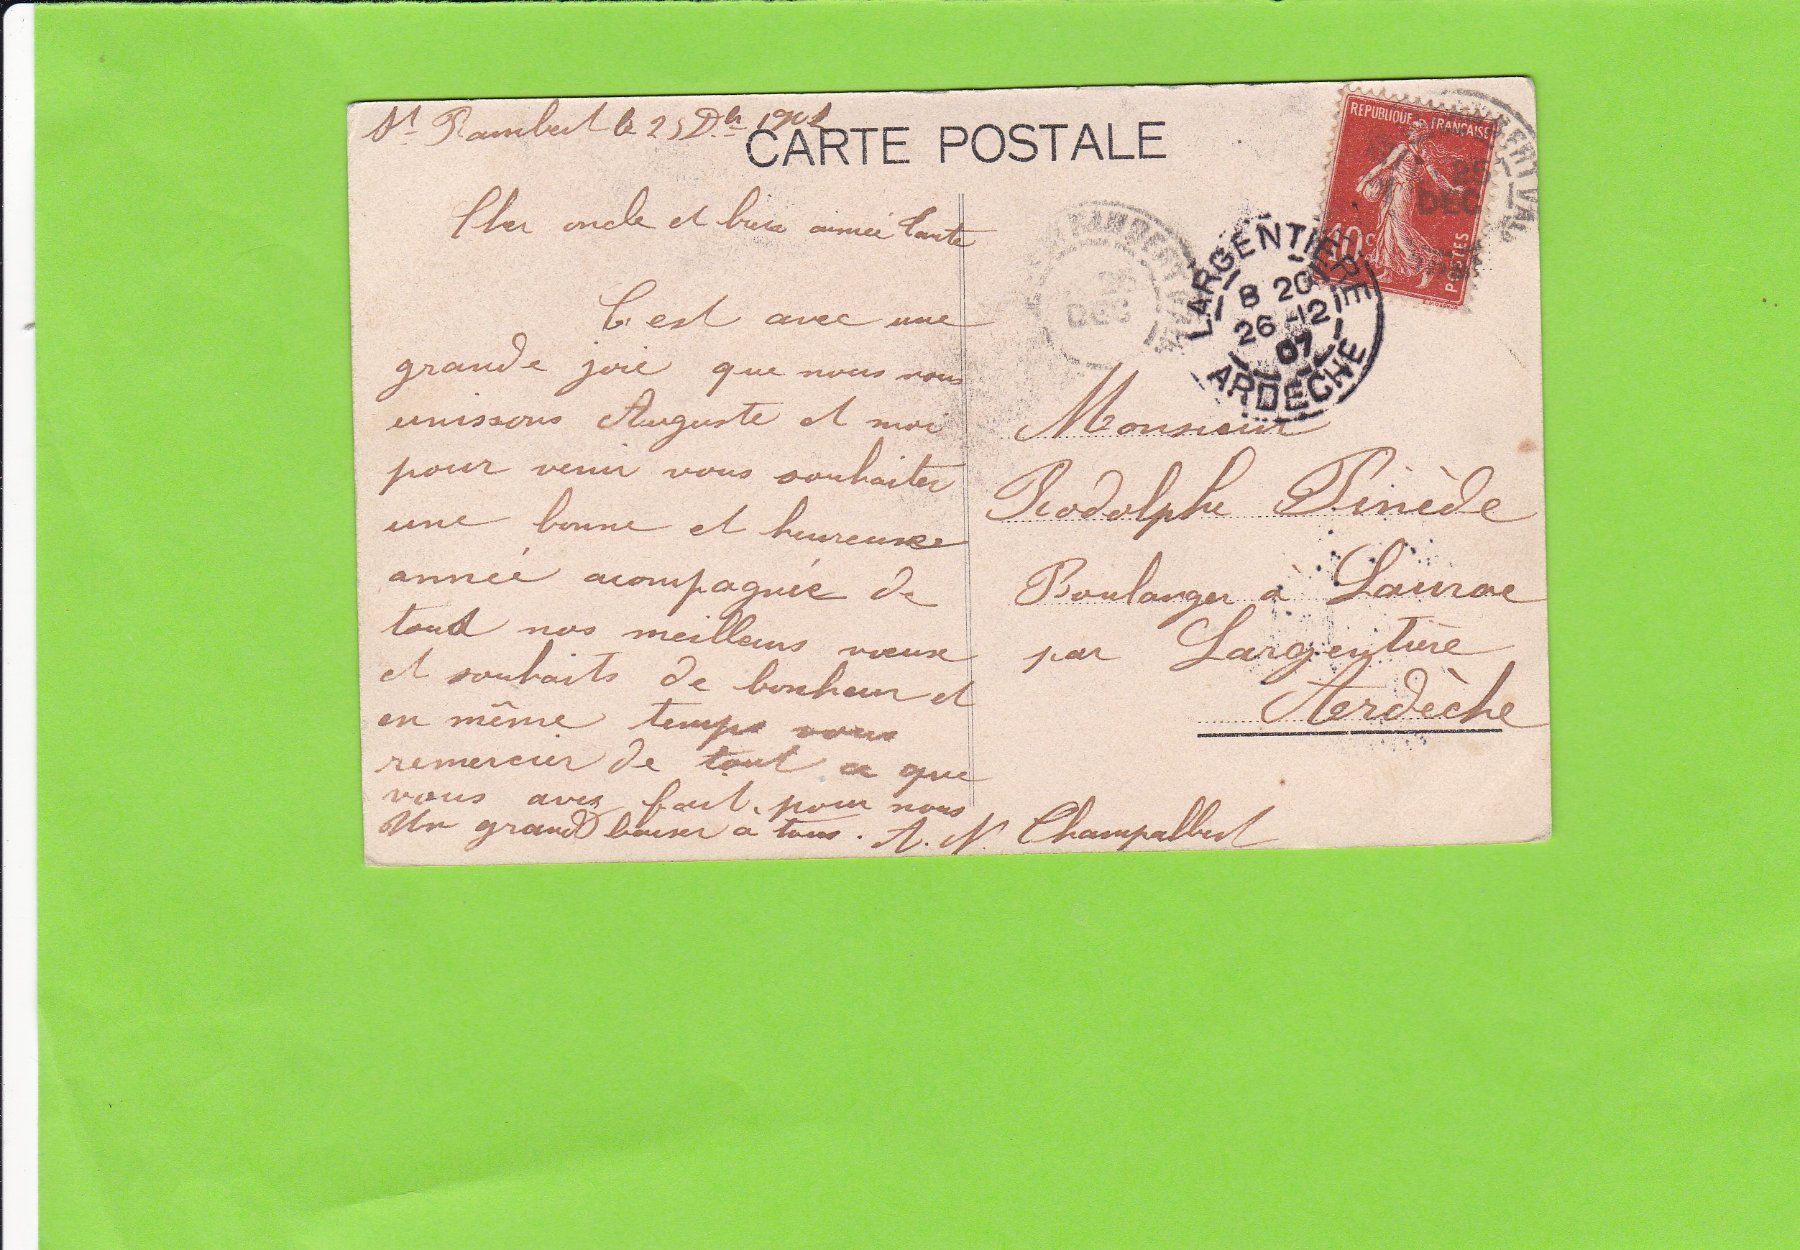 St Rambert le 25 Dbr
CARTE POSTALE
Cher oncle et bien aimée tante
C'est avec une
grande joie que nous nous
unissons Auguste et moi
pour venir vous souhaiter
une bonne et heureuse
année acompagnée de
tout nos meilleurs vœux
et souhaits de bonheur et
en même temps vous
remercier de tout ce que
vous avez fait pour nous
Un grand baiser à tous. A. N. Champalbert
REPUBLIQUE FRANÇAISE
10c
POSTES
25
DEC
RAMBERT
DEC
LARGENTIERE
8 20
26 -12
07
ARDECHE
Monsieur
Rodolphe Pinède
Boulanger à Laurac
par Largentière
Ardèche